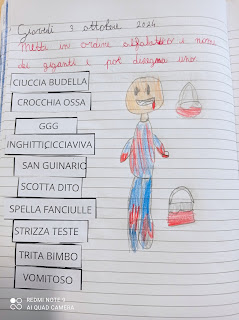 Giovedì 3 ottobre 2024
Metti in ordine alfabetico i nomi
dei giganti e poi disegna uno.
CIUCCIA BUDELLA
CROCCHIA OSSA
GGG
INGHITTICCICCIAVIVA
SAN GUINARIO
SCOTTA DITO
SPELLA FANCIULLE
STRIZZA TESTE
TRITA BIMBO
VOMITOSO
REDMI NOTE 9
AI QUAD CAMERA